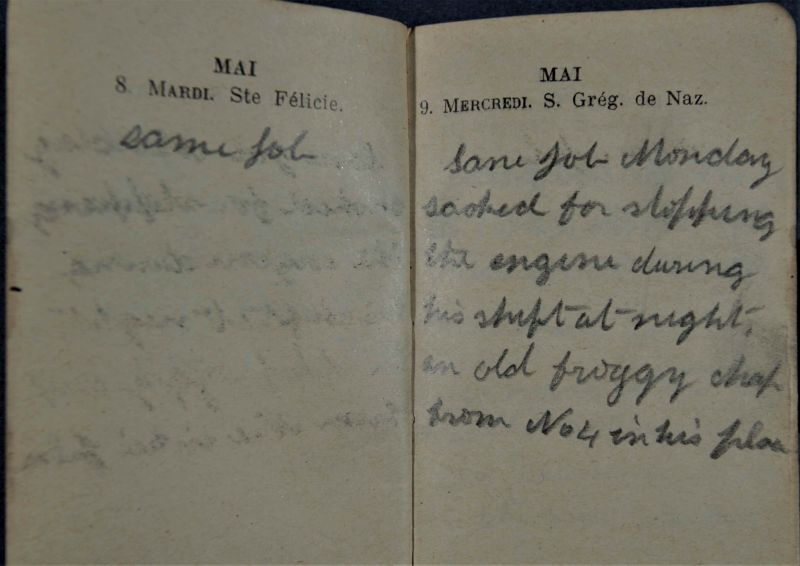 MAI
8. MARDI. Ste Félicie.
same job
MAI
9. MERCREDI. S. Grég. de Naz.
Same job Monday
sacked for stopping
the engine during
his shift at night,
an old froggy chap
from No 4 in his place